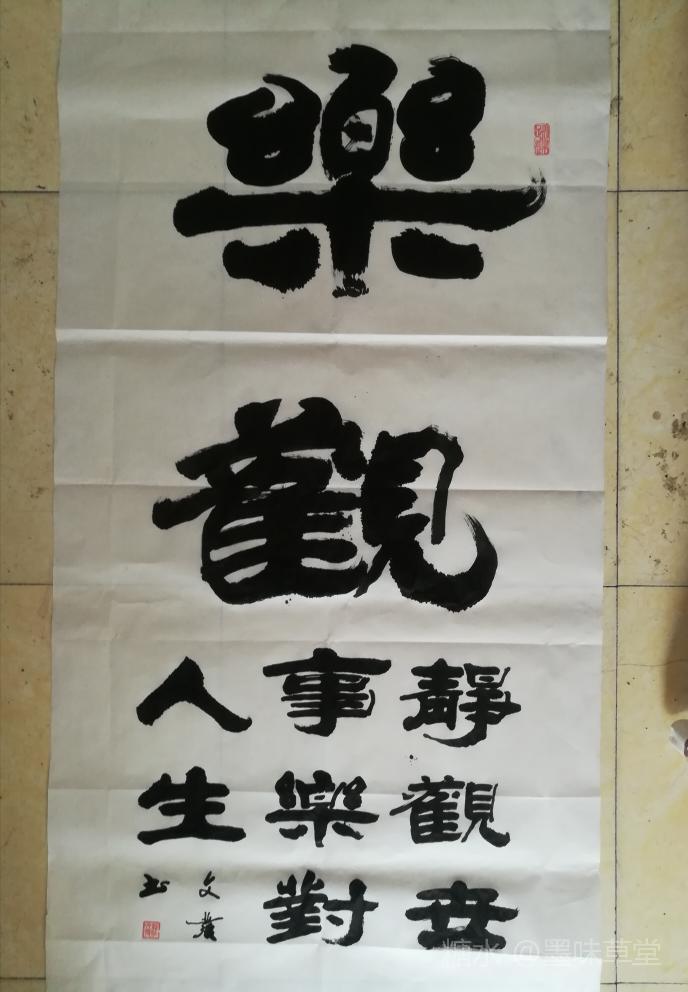 樂
觀
靜觀世
事樂對
人生
文
书
糖水 @墨味草堂